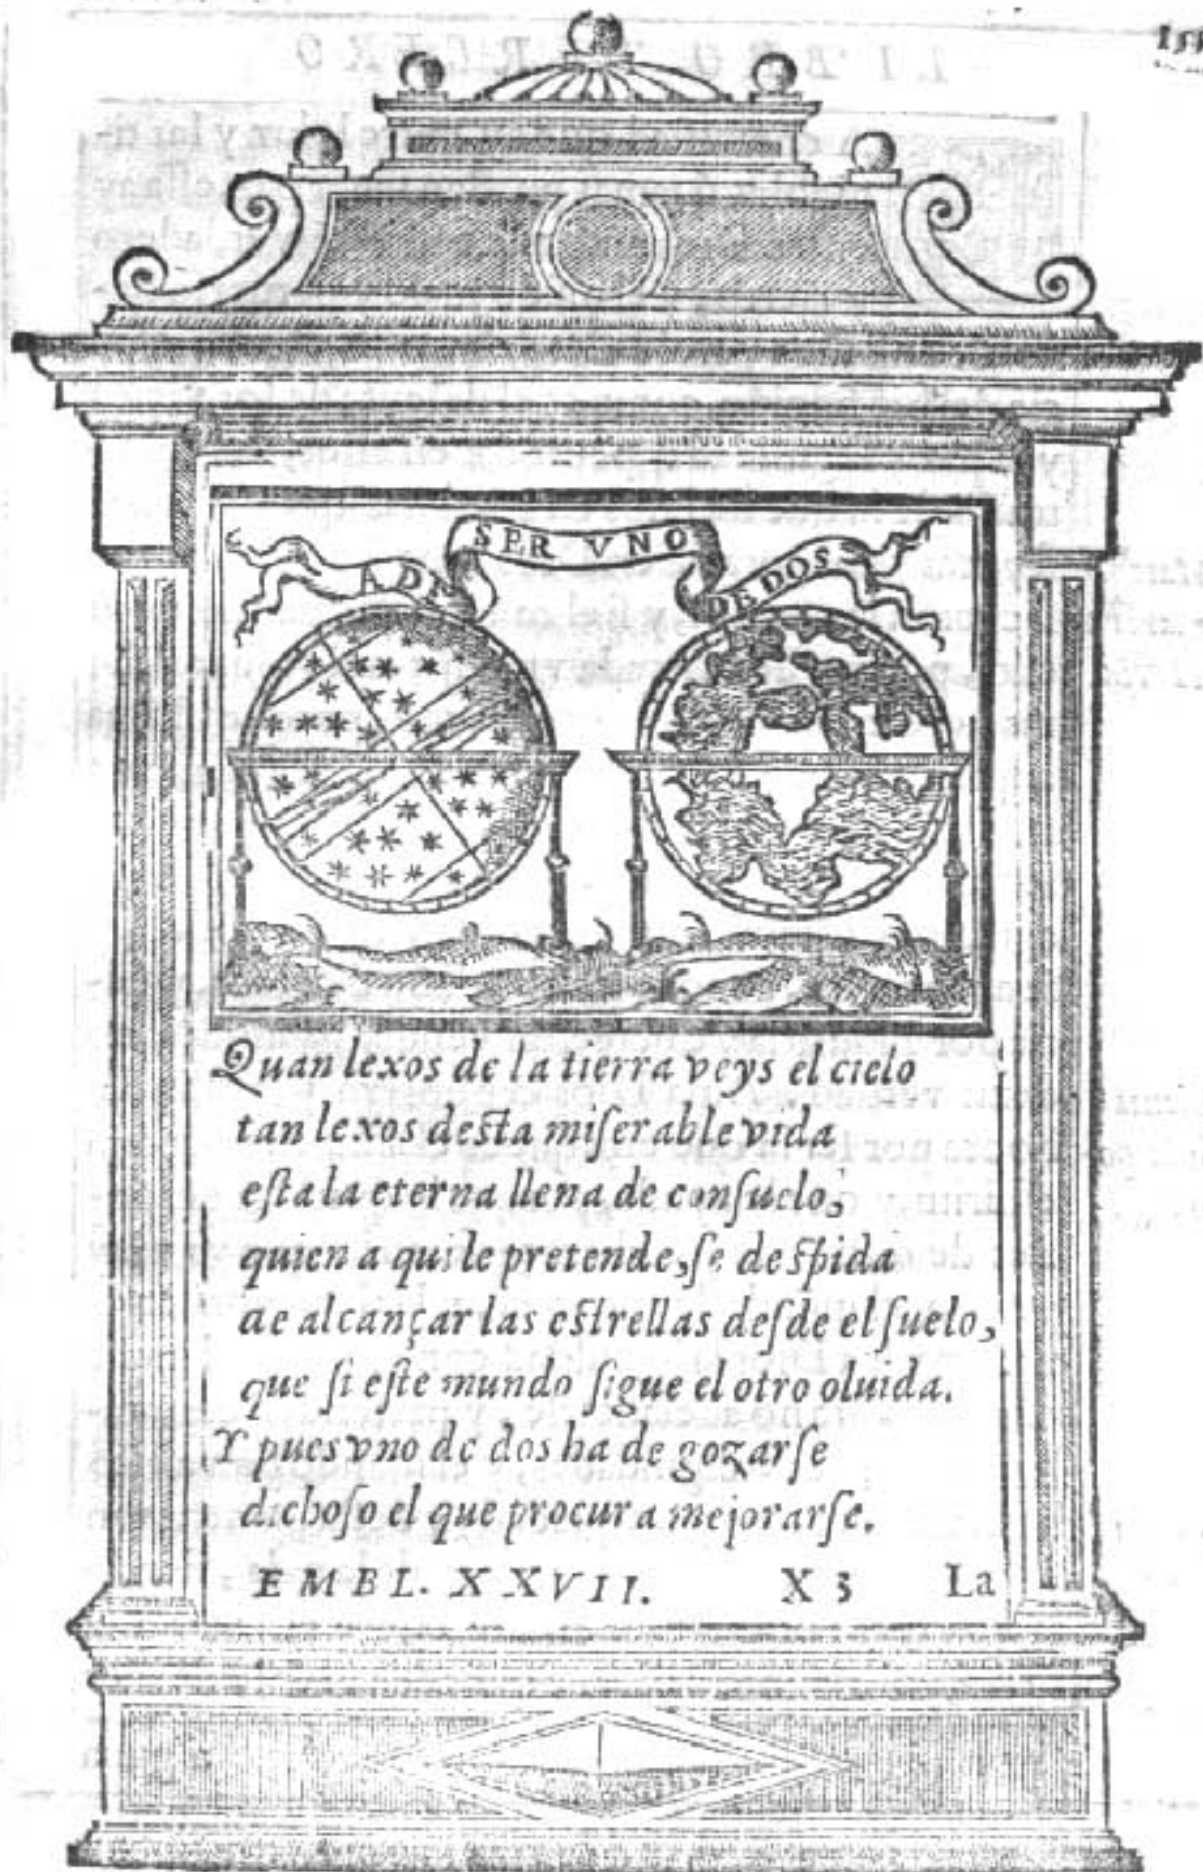 A DE SER VNO DE DOS
Quan lexos de la tierra veys el cielo
tan lexos desta miſerable vida
eſta la eterna llena de conſuelo,
quien a qui le pretende, ſe deſpida
de alcançar las eſtrellas deſde el ſuelo,
que ſi eſte mundo ſigue el otro oluida.
Y pues vno de dos ha de gozarſe
dichoſo el que procura mejorarſe.
EMBL. XXVII. X 3 La